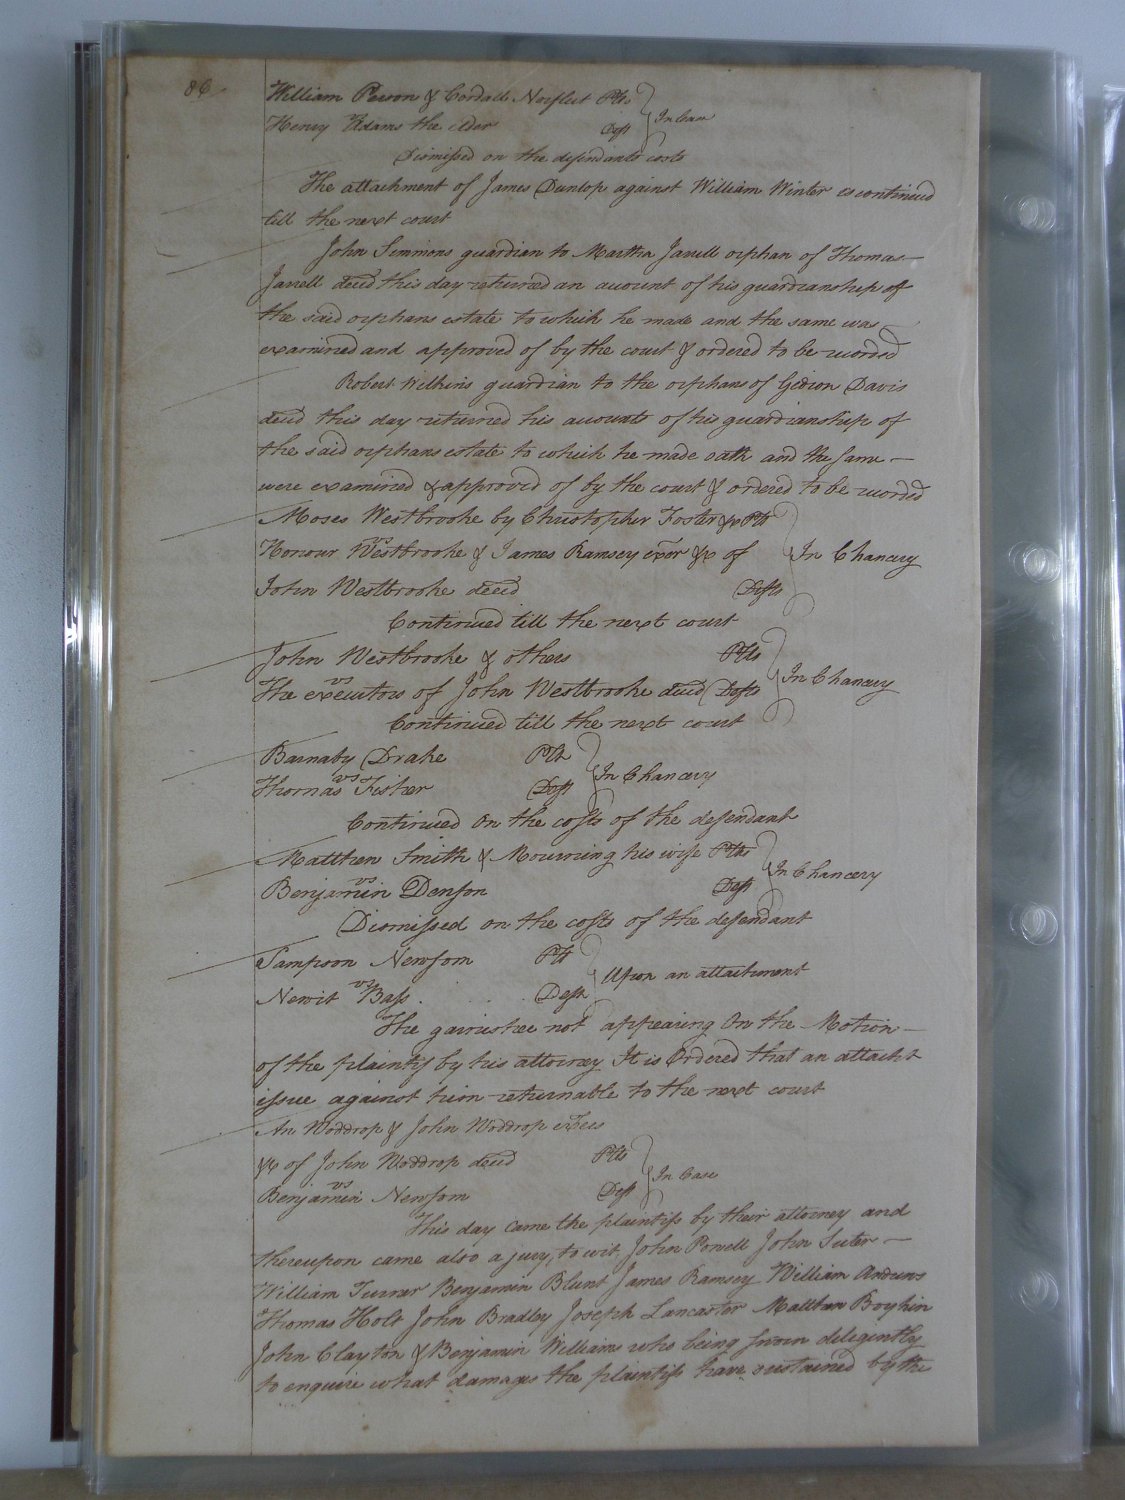 86
William Person & Cordall Norfleet Plts
In Case
Henry Adams the elder Deft
Dismissed on the defendants costs
The attachment of James Dunlop against William Winter is continued
till the next court
John Simmons guardian to Martha Jarrell orphan of Thomas
Jarrell decd this day returned an account of his guardianship of
the said orphans estate to which he made and the same was
examined and approved of by the court & ordered to be recorded
Robert Wilkins guardian to the orphans of Gideon Davis
decd this day returned his accounts of his guardianship of
the said orphans estate to which he made oath and the same
were examined & approved of by the court & ordered to be recorded
Moses Westbrooke by Christopher Foster &c Plt
vs
Honour Westbrooke & James Ramsey exor &c of In Chancery
John Westbrooke decd Defts
Continued till the next court
John Westbrooke & others Plts
vs In Chancery
The executors of John Westbrooke decd Defts
Continued till the next court
Barnaby Drake Plt
vs In Chancery
Thomas Fisher Deft
Continued on the costs of the defendant
Matthew Smith & Mourning his wife Plts
vs In Chancery
Benjamin Denson Deft
Dismissed on the costs of the defendant
Sampson Newsom Plt
vs Upon an attachment
Newit Bass Deft
The garnishee not appearing On the Motion
of the plaintif by his attorney It is Ordered that an attacht
issue against him returnable to the next court
An Woddrop & John Woddrop exers
&c of John Woddrop decd Plts
vs In Case
Benjamin Newsom Deft
This day came the plaintifs by their attorney and
thereupon came also a jury, to wit, John Powell John Suter
William Turner Benjamin Blunt James Ramsey William Andrews
Thomas Holt John Bradley Joseph Lancaster Matthew Boykin
John Clayton & Benjamin Williams who being sworn deligently
to enquire what damages the plaintifs have sustained by the